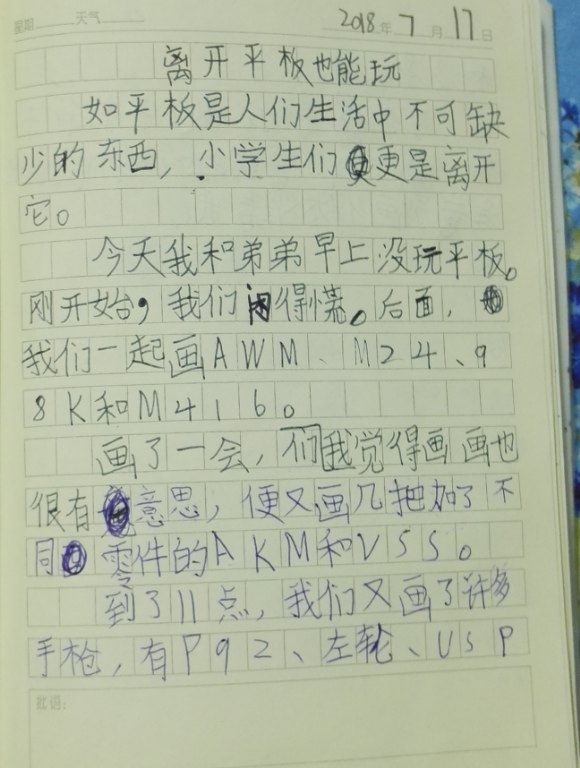 星期 天气 2018年7月17日
离开平板也能玩
如平板是人们生活中不可缺
少的东西，小学生们更是离开
它。
今天我和弟弟早上没玩平板。
刚开始，我们闲得慌。后面，
我们一起画AWM、M24、9
8K和M416。
画了一会，们我觉得画画也
很有意思，便又画几把加了不
同零件的AKM和VSS。
到了11点，我们又画了许多
手枪，有P92、左轮、USP
批语：